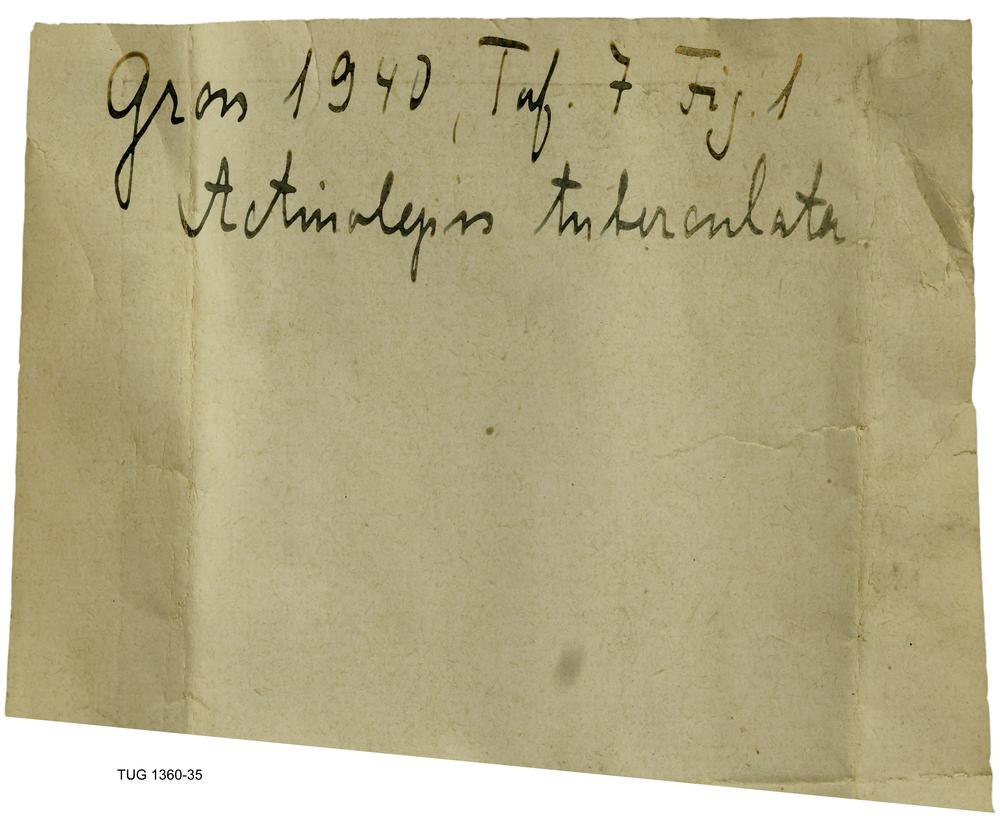 Gross 1940, Taf. 7 Fig. 1
Actinolepis tuberculata
TUG 1360-35